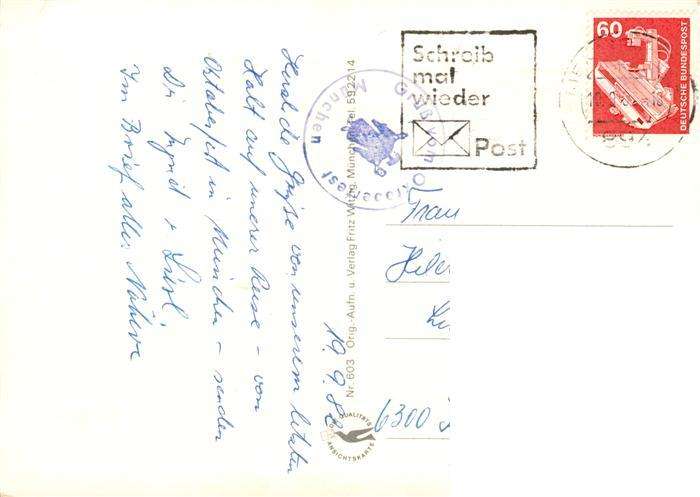 19.9.82
Herzliche Grüße von unserem letzten
Halt auf unserer Reise - vom
Oktoberfest in München - senden
Dir Ingrid +
Im Brief alles Nähere
Gruß vom Oktoberfest
München
Nr. 603 Orig.-Aufn. u. Verlag Fritz Witzig, München, Tel. 592214
QUALITÄTS
ANSICHTSKARTE
Schreib
mal
wieder
Post
60
DEUTSCHE BUNDESPOST
Frau
6300